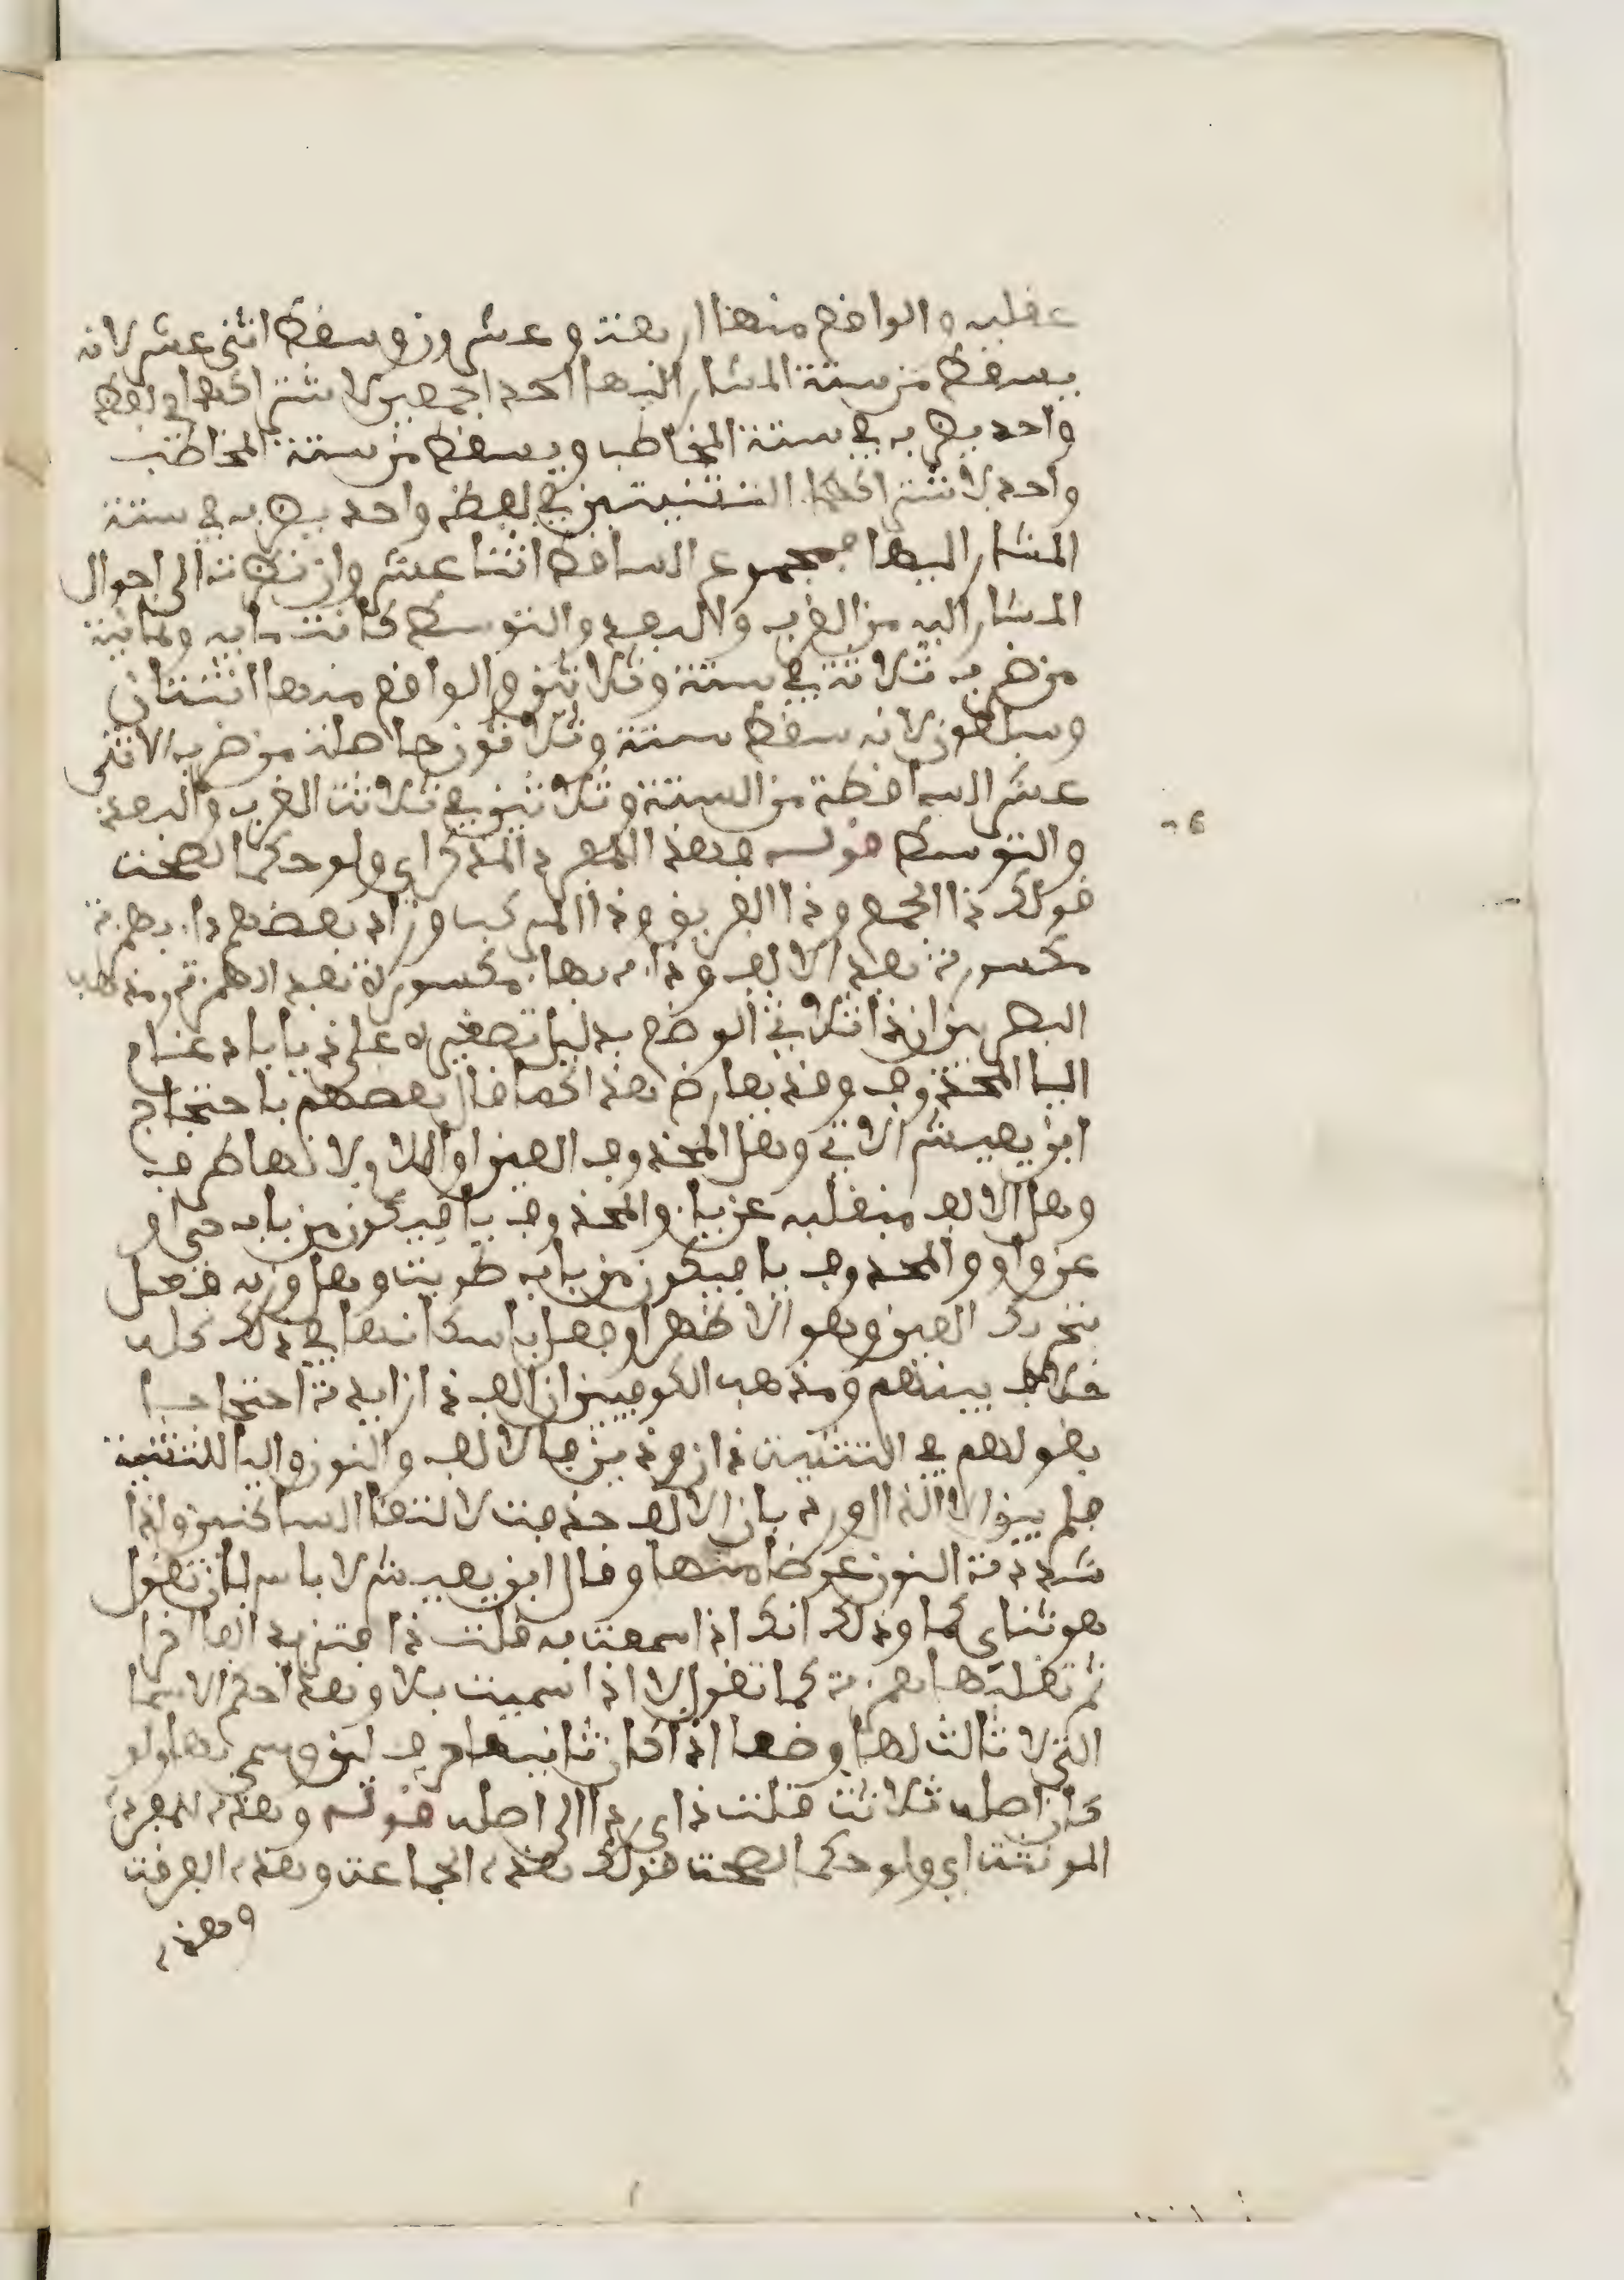 عقلية والواقع منها اربعة وعشرون وسقط اثنى عشر لانه
يسقط من ستة المشار اليها احد الجمعين لاشتراكهما في لفظ
واحد يضرب في ستة المخاطب ويسقط من ستة المخاطب
واحد لاشتراك التثنيتين في لفظ واحد يضرب في ستة
المشار اليها فمجموع الساقط اثنا عشر وان نظرته الى احوال
المشار اليه من القرب والبعد والتوسط كانت ماية وثمانية
من ضرب ثلاثة في ستة وثلاثين والواقع منها اثنتان
وسبعون لانه سقط ستة وثلاثون حاصلة من ضرب الاثنى
عشر الساقطة من الستة وثلاثين في ثلاثة القرب والبعد
والتوسط قوله فهذا المفرد المذكر اي ولو حكما لصحت
قولك ذا الجمع وذا الفريق وذا المركب وزاد بعضهم ذاء بهمزة
مكسورة بعد الالف وذائه بهاء مكسورة بعد الهمزة ومذهب
البصريين ان ذا ثلاثي الوضع بدليل تصغيره على ذيا باد غام
اليا المحذوف وقد يعارض بهذا كما قال بعضهم باحتجاج
ابن يعيش الاتي وهل المحذوف العين او اللام ولا نها طرف
وهل الالف منقلبه عن ياء والمحذوف يا فيكون من باب حي او
عن واو والمحذوف يا فيكون من باب طويت وهل وزنه فعل
بتحريك العين وهو الاظهر او فعل باسكانها في ذلك كله
خلاف بينهم ومذهب الكوفيين ان الف ذا زايدة احتجاجا
بقولهم في التثنية ذان وذين فالالف والنون واليا للتثنية
فلم يبق الا الذال ورد بان الالف حذفت لالتقا الساكنين ولذا
شددة النون عوضا منها وقال ابن يعيش لا باس بان تقول
هو ثناى كما وذلك انك اذا سميت به قلت ذا فتزيد الفا اخرا
ثم تقلبها همزة كما تقول لا اذا سميت بلا وهذا حكم الاسما
التي لا ثالث لها وضعا اذا كان ثانيها حرف لين وسمي بها ولو
كان اصله ثلاثة قلت ذاي ردا الى اصله قوله وهذه للمفردة
المونثة اي ولو حكما لصحت قولك هذه الجماعة وهذه الفرقت
وهذه